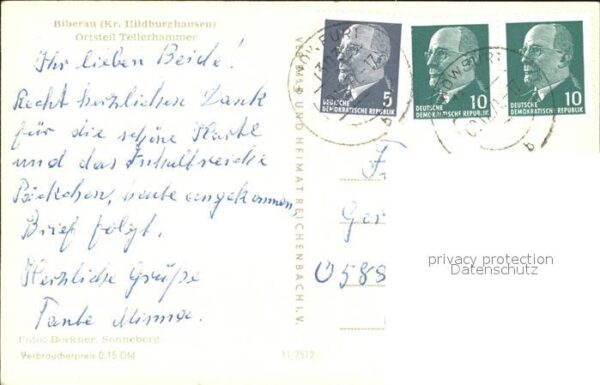 Biberau (Kr. Hildburghausen)
Ortsteil Tellerhammer
Ihr lieben Beide!
Recht herzlichen Dank
für die schöne Karte
und das Inhaltreiche
Päckchen, heute angekommen,
Brief folgt.
Herzliche Grüße
Tante Minna.
Foto: Böckner, Sonneberg
Verbraucherpreis 0,15 DM
UND HEIMAT REICHENBACH I. V.
5
DEUTSCHE
DEMOKRATISCHE REPUBLIK
10
DEUTSCHE
DEMOKRATISCHE REPUBLIK
10
DEUTSCHE
DEMOKRATISCHE REPUBLIK
b
b
F
Ger
0588
privacy protection
Datenschutz